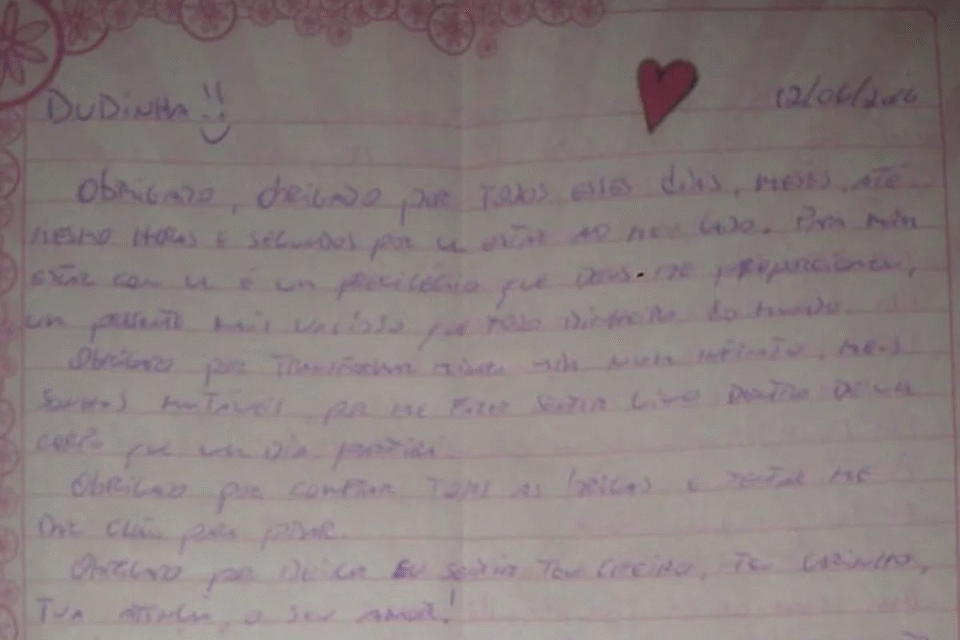 DuDinha!! 12/06/2016
Obrigado, obrigado por todos esses dias, meses, até
mesmo horas e segundos por u estar ao meu lado. Para mim
estar com u é um privilégio que Deus me proporcionou,
um presente mais valioso que todo dinheiro do mundo.
Obrigado por transformar minha num infinito, meus
sonhos por me fazer sentir vivo dentro de um
que um dia
Obrigado por comprar todas as brigas e tentar me
dar chão para pisar.
Obrigado por deixar eu sentir teu cheiro, teu carinho,
tua o seu amor!